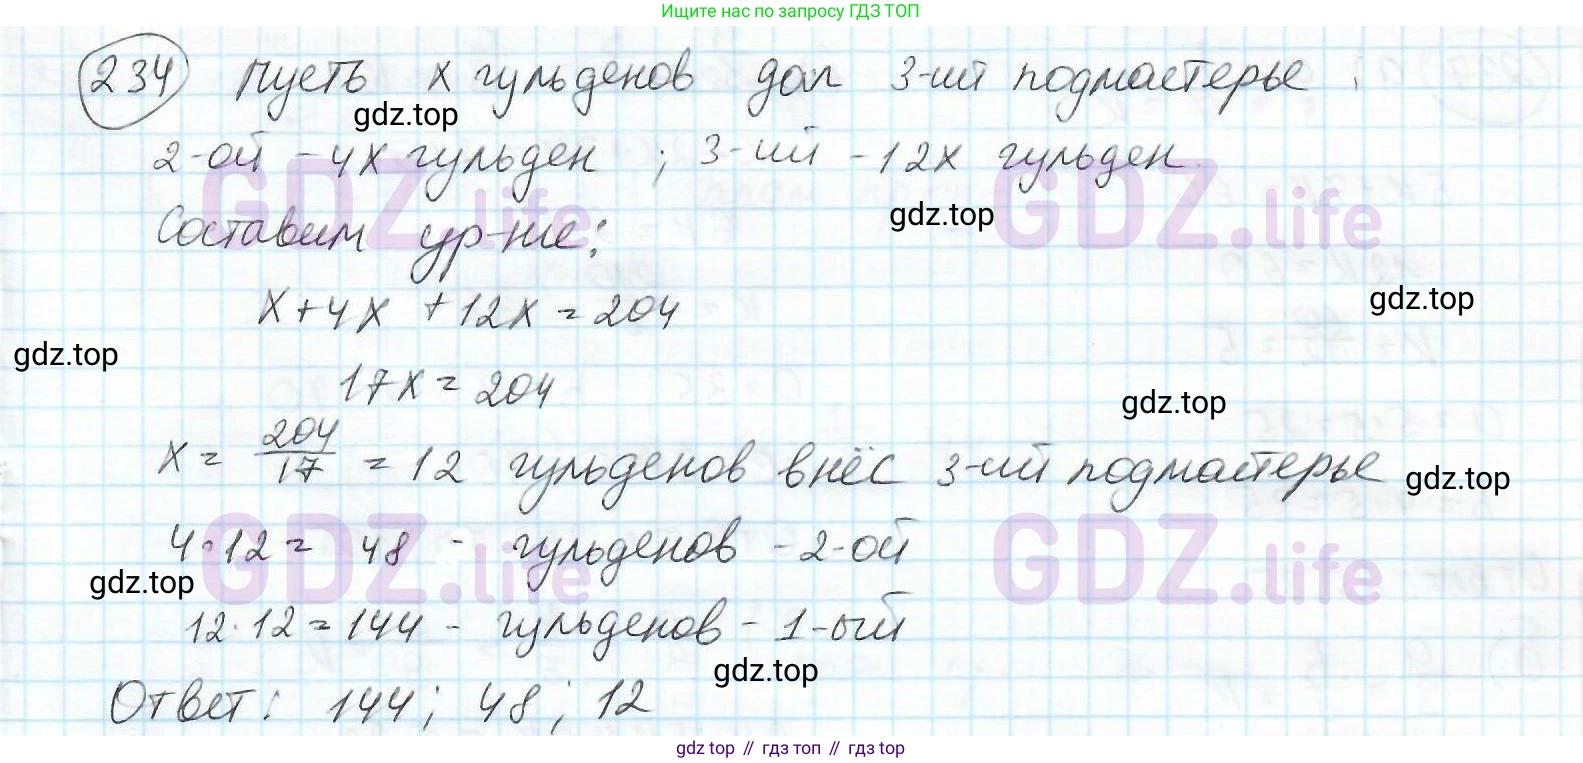 Ищите нас по запросу ГДЗ ТОП
234 Пусть x гульденов дал 3-ий подмастерье ;
gdz.top
2-ой - 4x гульден ; 3-ий - 12x гульден.
GDZ.life GDZ.life
gdz.top
Составим ур-ние:
x + 4x + 12x = 204
gdz.top
gdz.top
17x = 204
gdz.top
x = 204/17 = 12 гульденов внёс 3-ий подмастерье
gdz.top
4·12 = 48 - гульденов - 2-ой
GDZ.life GDZ.life
gdz.top
12·12 = 144 - гульденов - 1-ый
gdz.top
Ответ: 144; 48; 12
gdz top // гдз топ // гдз top